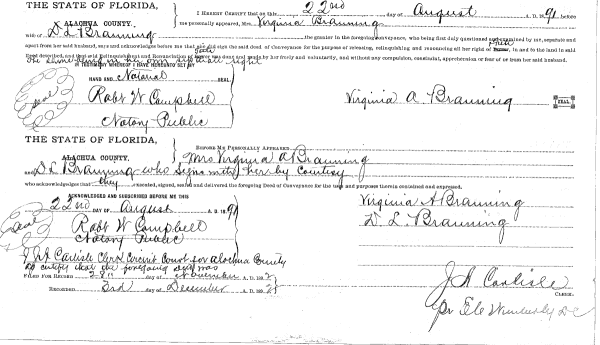 THE STATE OF FLORIDA,
ALACHUA COUNTY.
I HEREBY CERTIFY that on this 22nd day of August A. D. 1891 before
me personally appeared, Mrs Virginia Branning
wife of D L Branning the grantor in the foregoing conveyance, who being first duly questioned and examined by me, separate and
apart from her said husband, says and acknowledges before me that she did sign the said deed of Conveyance for the purpose of releasing, relinquishing and renouncing all her right of and to the land in said
her own separate right
IN TESTIMONY WHEREOF I HAVE HEREUNTO SET MY
HAND AND Notarial SEAL
Seal
Robt W Campbell
Notary Public
Virginia A Branning
SEAL.
THE STATE OF FLORIDA,
ALACHUA COUNTY.
BEFORE ME PERSONALLY APPEARED Mrs Virginia A Branning
and D L Branning who signs with her by courtesy
who acknowledges that they executed, signed, sealed and delivered the foregoing Deed of Conveyance for the uses and purposes therein contained and expressed.
ACKNOWLEDGED AND SUBSCRIBED BEFORE ME THIS
22nd DAY OF August A. D. 1891
Seal
Robt W Campbell
Notary Public
Virginia A Branning
D. L. Branning
I J A Carlisle Clerk Circuit Court for Alachua County
do certify that the foregoing deed was
FILED FOR RECORD 28th day of November A. D. 189
RECORDED 3rd day of December A. D. 189
J A Carlisle
CLERK.
pr Wimberly D C